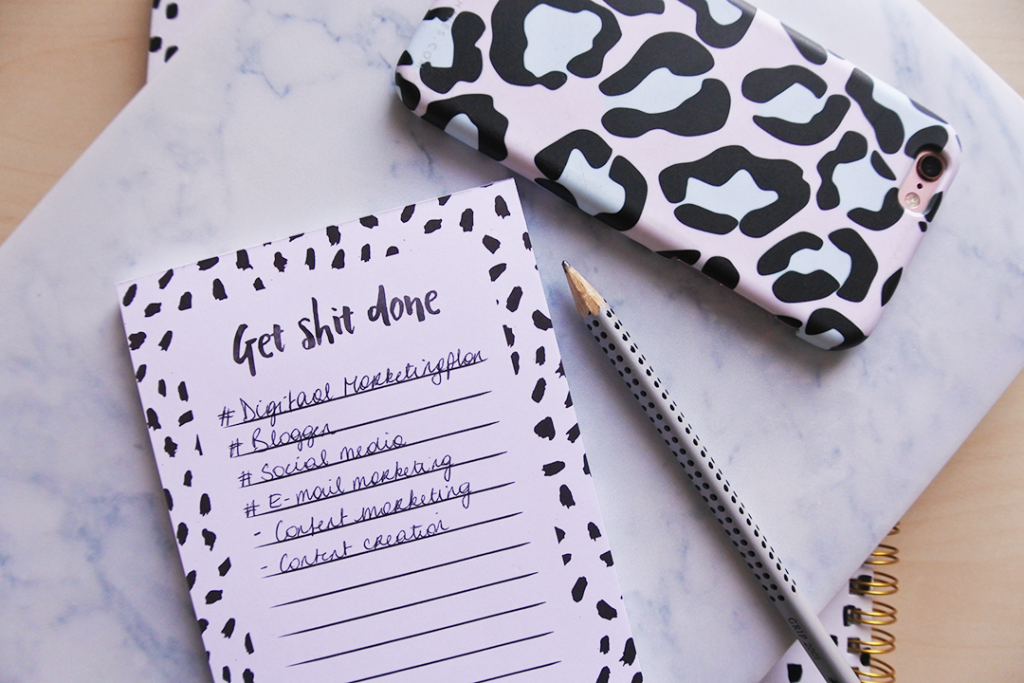 Get shit done
# Digitaal Marketingplan
# Blogger
# Social media
# E-mail marketing
- Content marketing
- Content creation
GRIP